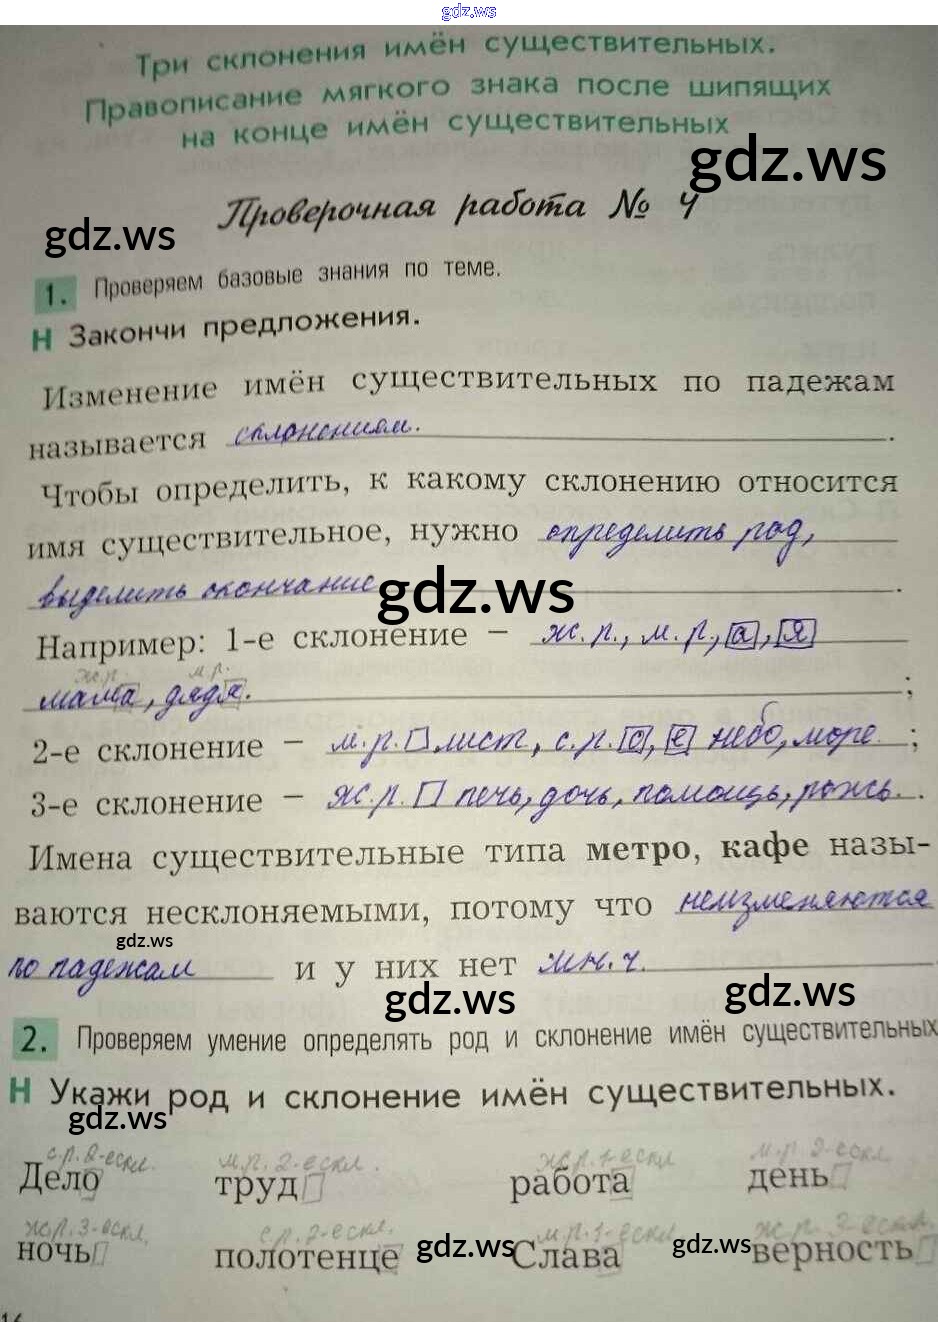 gdz.ws
Три склонения имён существительных.
Правописание мягкого знака после шипящих
на конце имён существительных
gdz.ws
Проверочная работа № 4
gdz.ws
1. Проверяем базовые знания по теме.
Н Закончи предложения.
Изменение имён существительных по падежам
называется склонением.
Чтобы определить, к какому склонению относится
имя существительное, нужно определить род,
выделить окончание.
gdz.ws
Например: 1-е склонение – ж.р., м.р., а, я
ж.р. м.р.
мама, дядя. ;
2-е склонение – м.р. лист, с.р. о, е небо, море ;
3-е склонение – ж.р. печь, дочь, помощь, рожь.
Имена существительные типа метро, кафе назы-
ваются несклоняемыми, потому что неизменяются
gdz.ws
по падежам и у них нет мн.ч.
gdz.ws gdz.ws
2. Проверяем умение определять род и склонение имён существительных
Н Укажи род и склонение имён существительных.
gdz.ws
с.р. 2-е скл. м.р. 2-е скл. ж.р. 1-е скл м.р 2-е скл
Дело труд работа день
ж.р. 3-е скл. с.р. 2-е скл. м.р. 1-е скл ж.р.
ночь полотенце Слава верность
gdz.ws gdz.ws